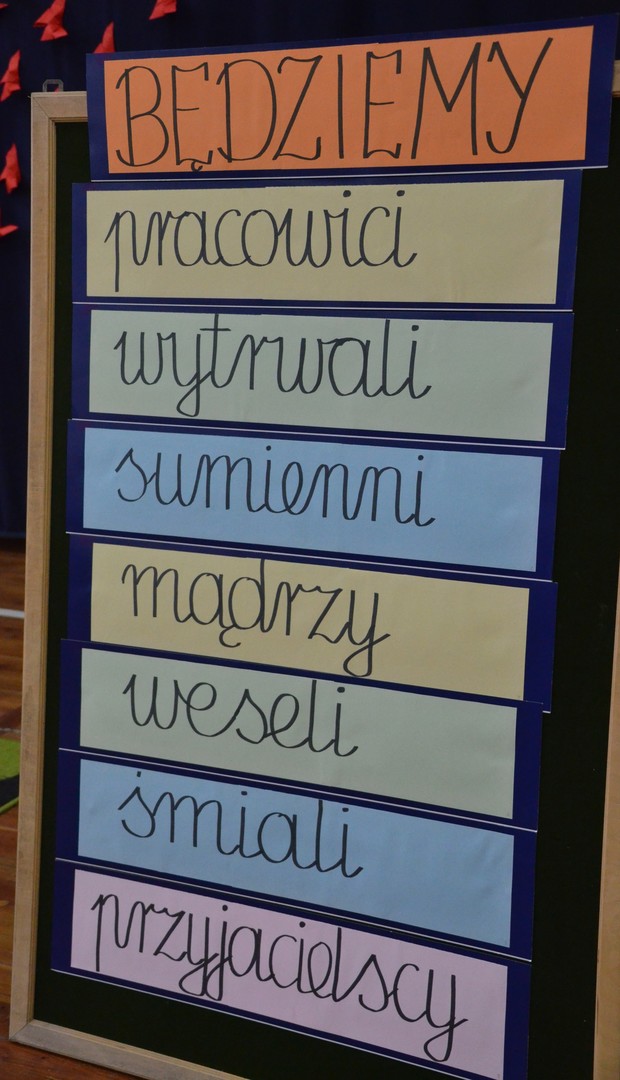 BĘDZIEMY
pracowici
wytrwali
sumienni
mądrzy
weseli
śmiali
przyjacielscy